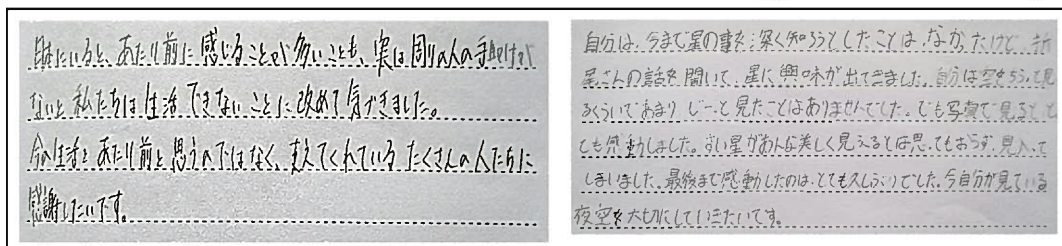 日本にいると、あたり前に感じることが多いことも、実は周りの人の手助けが
ないと私たちは生活できないことに改めて気づきました。
今の生活をあたり前と思うのではなく、支えてくれているたくさんの人たちに
感謝したいです。
自分は、今まで星の事を深く知ろうとしたことは、なかったけど、
星さんの話を聞いて、星に興味が出てきました。自分は空をちらっと見
るくらいであまりじーっと見たことはありませんでした。でも写真で見ると、と
ても感動しました。星があんな美しく見えるとは思ってもおらず、見入って
しまいました。最後まで感動したのは、とても久しぶりでした。今自分が見ている
夜空を大切にしていきたいです。